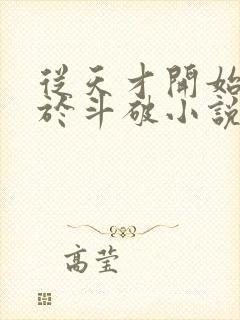 從天才開始
於斗破小說
高莹